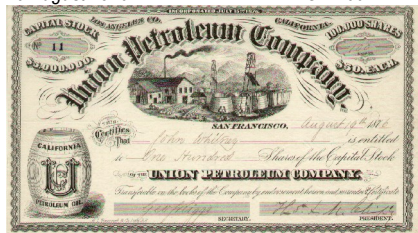 CAPITAL STOCK
LOS ANGELES CO.
CALIFORNIA.
100,000 SHARES
No 11
$5,000,000.
$50. EACH.
Union Petroleum Company.
SAN FRANCISCO, August 19th 187
This Certifies
That John Wheeling is entitled
to One Hundred Shares of the Capital Stock
OF THE UNION PETROLEUM COMPANY
Transferable on the books of the Company by endorsement hereon and surrender of this Certificate
CALIFORNIA
U
PETROLEUM OIL
SECRETARY.
PRESIDENT.